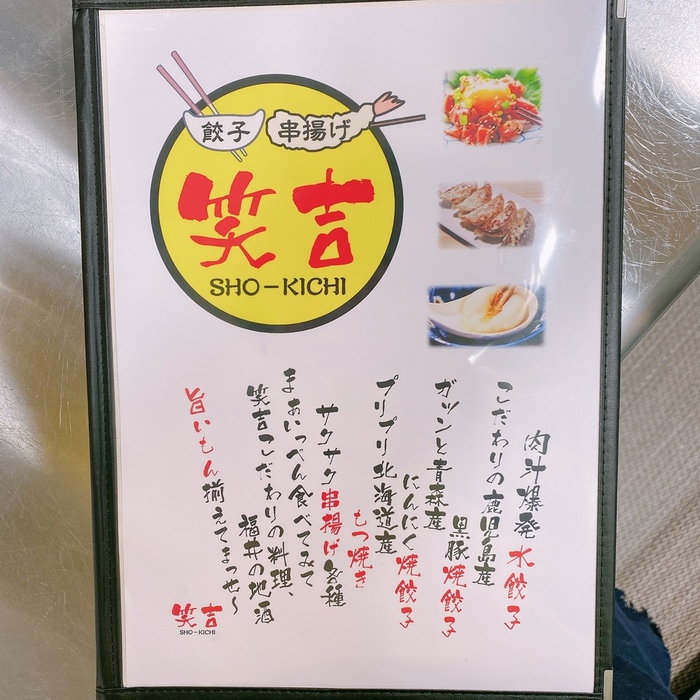 餃子
串揚げ
笑吉
SHO-KICHI
肉汁爆発 水餃子
こだわりの鹿児島産
黒豚焼餃子
ガツンと青森産
にんにく焼餃子
プリプリ北海道産
もつ焼き
サクサク串揚げ各種
まぁいっぺん食べてみて
笑吉こだわりの料理、
福井の地酒
旨いもん揃えてまっせ~
笑吉
SHO-KICHI